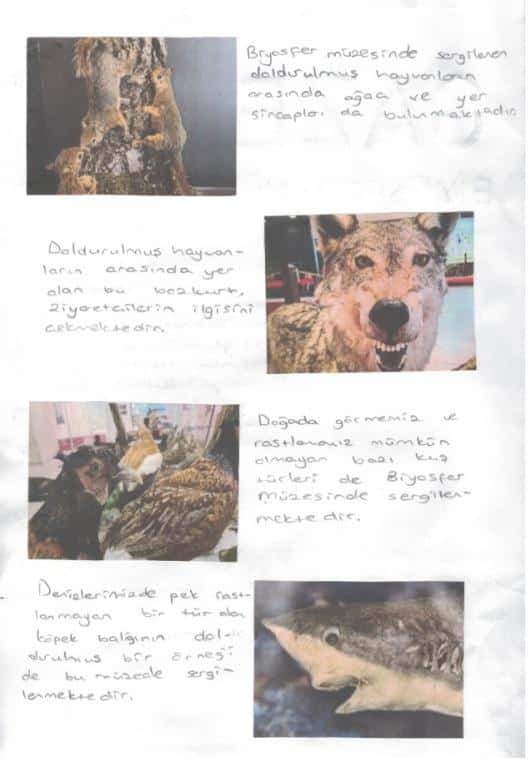 Biyosfer müzesinde sergilenen
doldurulmuş hayvanların
arasında ağaç ve yer
sincapları da bulunmaktadır.
Doldurulmuş hayvan-
ların arasında yer
alan bu bozkurt,
ziyaretcilerin ilgisini
çekmektedir.
Doğada görmemiz ve
rastlamamız mümkün
olmayan bazı kuş
türleri de Biyosfer
Müzesinde sergilen-
mektedir.
Denizlerimizde pek rast-
lanmayan bir tür olan
köpek balığının dol-
durulmuş bir örneği
de bu müzede sergi-
lenmektedir.